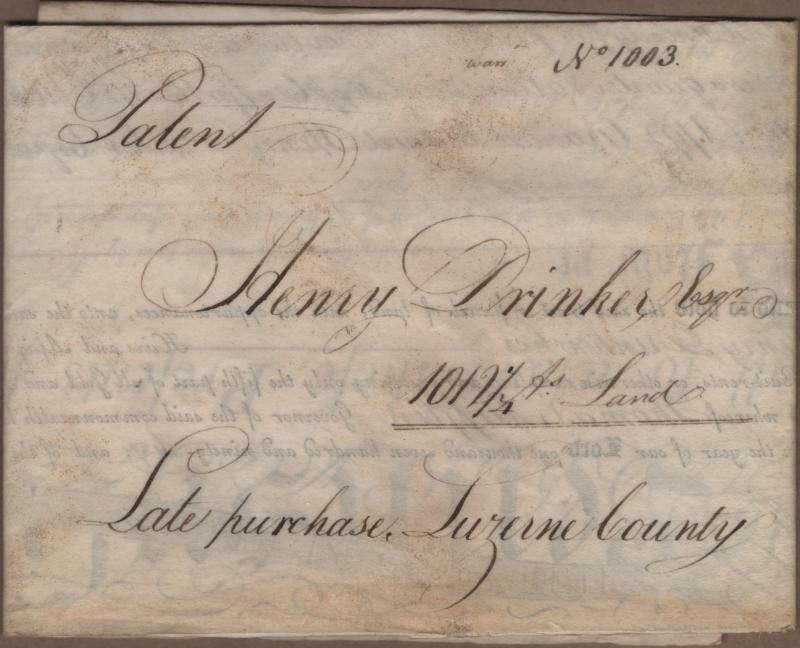 warr.t No 1003.
Patent
Henry Drinker, Esqr.
1012 1/4 As. Land
Late purchase, Luzerne County